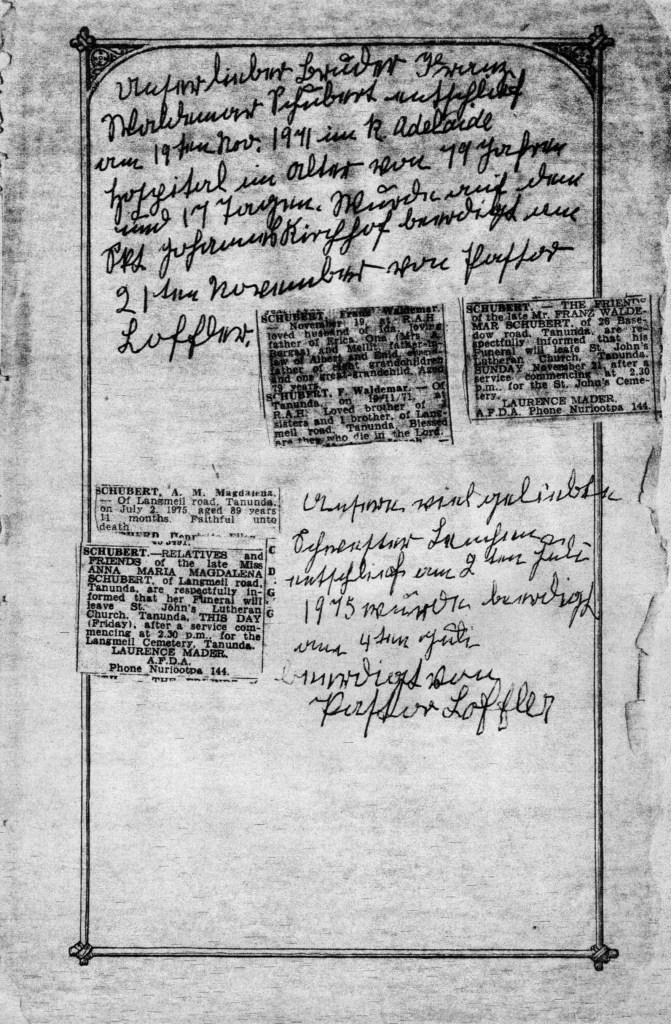 Unser lieber Bruder Franz
Waldemar Schubert entschlief
am 19ten Nov. 1971 im R. Adelaide
Hospital im Alter von 79 Jahren
und 17 Tagen. Wurde auf dem
Skt Johannes Kirchhof beerdigt am
21ten November von Pastor
Loffler.
SCHUBERT, Franz Waldemar.
— November 19, at R.A.H.
loved husband of Ida, loving
father of Erica, Ona (Mrs.
and Melli, father-in-
law of Albert and Enid,
father of eight grandchildren
and one great-grandchild. Aged
79 years.
SCHUBERT, F. Waldemar. — Of
Tanunda, on 19/11/71, at
R.A.H. Loved brother of
sisters and 1 brother, of Lang-
meil road, Tanunda. Blessed
are they who die in the Lord.
SCHUBERT. — THE FRIENDS
of the late Mr. FRANZ WALDE-
MAR SCHUBERT, of 26 Base-
dow road, Tanunda, are re-
spectfully informed that his
Funeral will leave St. John's
Lutheran Church, Tanunda,
SUNDAY, November 21, after a
service commencing at 2.30
p.m., for the St. John's Ceme-
tery.
LAURENCE MADER,
A.F.D.A. Phone Nuriootpa 144.
SCHUBERT, A. M. Magdalena.
— Of Langmeil road, Tanunda,
on July 2, 1975, aged 89 years
11 months. Faithful unto
death
SCHUBERT.—RELATIVES and
FRIENDS of the late Miss
ANNA MARIA MAGDALENA
SCHUBERT, of Langmeil road,
Tanunda, are respectfully in-
formed that her Funeral will
leave St. John's Lutheran
Church, Tanunda, THIS DAY
(Friday), after a service com-
mencing at 2.30 p.m., for the
Langmeil Cemetery, Tanunda.
LAURENCE MADER,
A.F.D.A.
Phone Nuriootpa 144.
Unsere viel geliebte
Schwester Lenchen
entschlief am 2ten Juli
1975 wurde beerdigt
am 4ten Juli
beerdigt von
Pastor Loffler